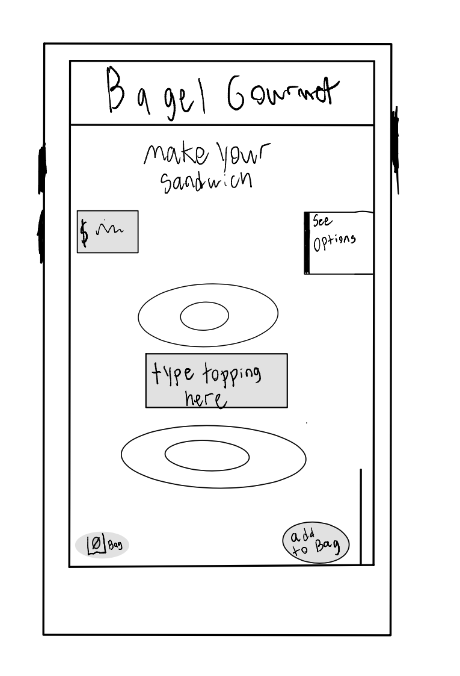 Bagel Gourmet
make your
sandwich
$
See
Options
type topping
here
Ø Bag
add
to Bag